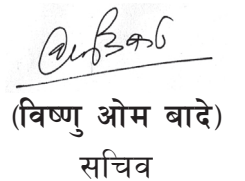 (विष्णु ओम बादे)
सचिव